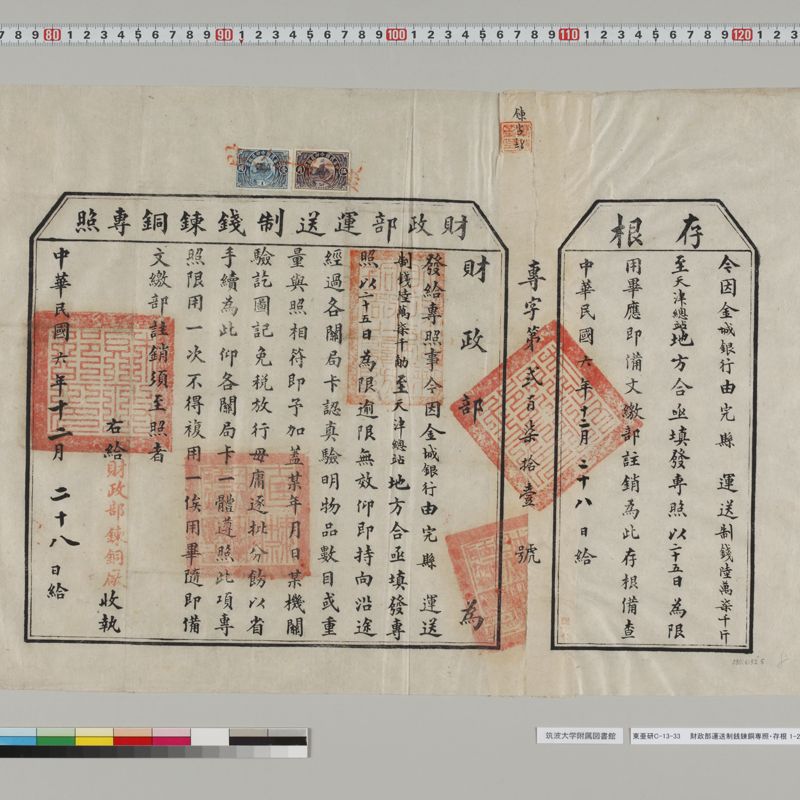 7 8 9 80 1 2 3 4 5 6 7 8 9 90 1 2 3 4 5 6 7 8 9 100 1 2 3 4 5 6 7 8 9 110 1 2 3 4 5 6 7 8 9 120 1 2 3
存根
今因金城銀行由完縣 運送制錢陸萬柒千斤
至天津總站地方合亟填發專照以二十五日為限
用畢應即備文繳部註銷為此存根備查
中華民國六年十二月二十八日給
專字第貳百柒拾壹號
財政部運送制錢鍊銅專照
財政部為
發給專照事今因金城銀行由完縣 運送
制錢陸萬柒千觔至天津總站地方合亟填發專
照以二十五日為限逾限無效仰即持向沿途
經過各關局卡認真驗明物品數目或重
量與照相符即予加蓋某年月日某機關
驗訖圖記免稅放行毋庸逐批分飭以省
手續為此仰各關局卡一體遵照此項專
照限用一次不得複用一俟用畢隨即備
文繳部註銷須至照者
右給財政部鍊銅廠收執
中華民國六年十二月二十八日給
筑波大学附属図書館
東亜研C-13-33 財政部運送制銭錬銅専照・存根 1-2